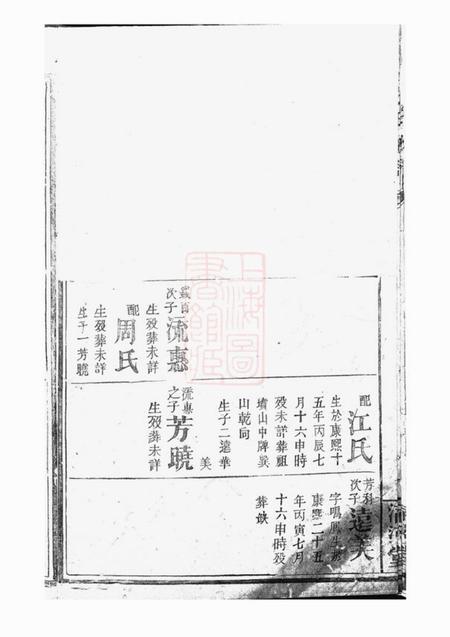 配
江氏
生於康熙十
五年丙辰七
月十六申時
歿未詳葬祖
墳山中牌巽
山乾向
生子二達華
美
芳科
次子
達美
字鳴
康熙二十五
年丙寅七月
十六申時歿
葬缺
次子
流惠
生歿葬未詳
配
周氏
生歿葬未詳
生子一芳曉
流惠
之子
芳曉
生歿葬未詳
上海圖
書館